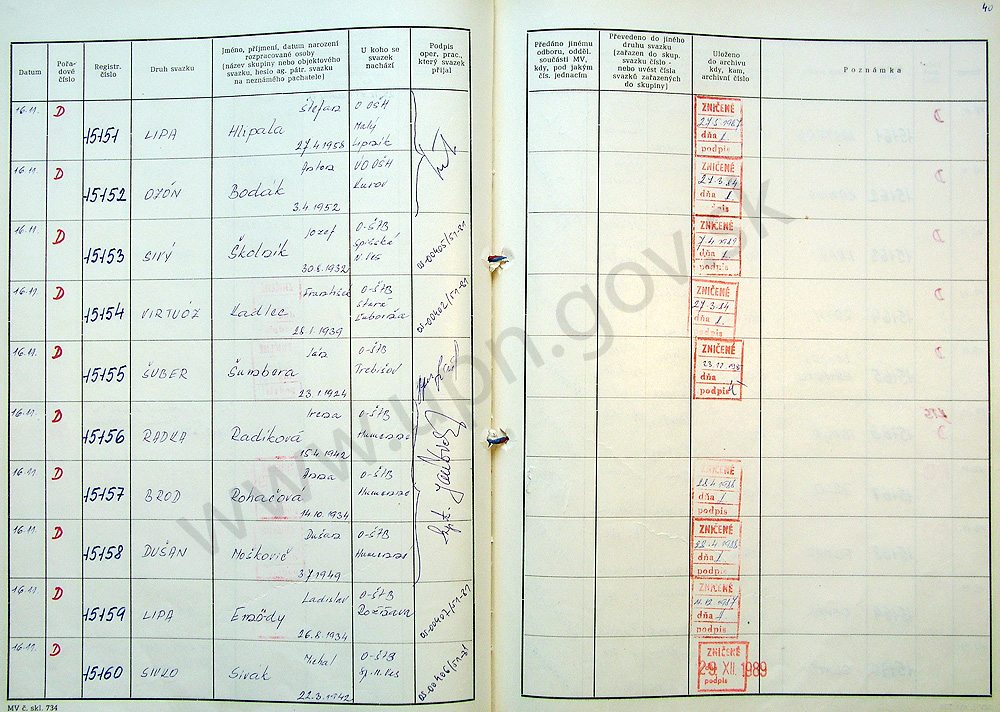 40
Datum
Pořa-
dové
číslo
Registr.
číslo
Druh svazku
Jméno, příjmení, datum narození
rozpracované osoby
(název skupiny nebo objektového
svazku, heslo ag. pátr. svazku
na neznámého pachatele)
U koho se
svazek
nachází
Podpis
oper. prac.,
který svazek
přijal
Předáno jinému
odboru, odděl.
součásti MV,
kdy, pod jakým
čís. jednacím
Převedeno do jiného
druhu svazku
(zařazen do skup.
svazku číslo -
nebo uvést čísla
svazků zařazených
do skupiny)
Uloženo
do archivu
kdy, kam,
archivní číslo
Poznámka
16.11. D 15151 LIPA Štefan Hlipala 27.4.1958 O OŠH Malý Lipník
ZNIČENÉ
dňa 1.
podpis
16.11. D 15152 OZÓN Bodak 3.4.1952 VO OŠH Kurov
ZNIČENÉ
27.3.84
dňa 1.
16.11. D 15153 SIVÝ Jozef Školnik 30.8.1932 O-ŠTB Spišská N. Ves 03-00405/51-81
ZNIČENÉ
dňa 1.
podpis
16.11. D 15154 VIRTUÓZ František Kadlec 28.1.1939 O-ŠTB Stará Ľubovňa 03-00402/51-81
ZNIČENÉ
27.3.84
dňa 1.
podpis
16.11. D 15155 ŠUBER Ján Šumbora 23.1.1924 O-ŠTB Trebišov
ZNIČENÉ
dňa
podpis
16.11. D 15156 RADKA Irena Radiková 15.4.1942 O-ŠTB Humenné
16.11. D 15157 BROD Anna Roháčová 14.10.1934 O-ŠTB Humenné
ZNIČENÉ
dňa 1.
podpis
16.11. D 15158 DUŠAN Dušan Moškovič 3.7.1949 O-ŠTB Humenné
ZNIČENÉ
dňa 1.
podpis
16.11. D 15159 LIPA Ladislav Emődy 26.8.1934 O-ŠTB Rožňava 03-00402/51-81
ZNIČENÉ
dňa 1.
podpis
16.11. D 15160 SIVKO Michal Sivák 22.3.1942 O-ŠTB Sp. N. Ves 03-00406/51-81
ZNIČENÉ
29. XII. 1989
podpis
MV č. skl. 734
www.upn.gov.sk